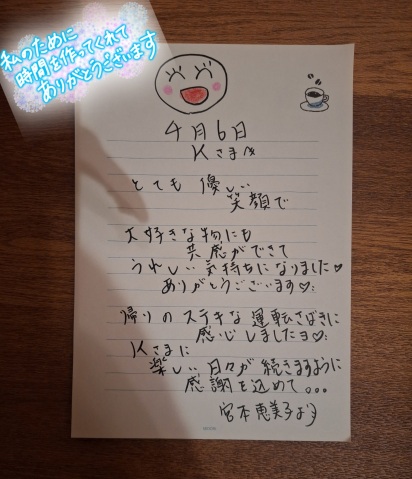 私のために
時間を作ってくれて
ありがとうございます
4月6日
Kさまへ
とても 優しい
笑顔で
大好きな物にも
共感ができて
うれしい気持ちになりました♡
ありがとうございます♡
帰りのステキな運転さばきに
感心しましたヨ♡
Kさまに
楽しい日々が続きますように
感謝を込めて...
宮本恵美子より